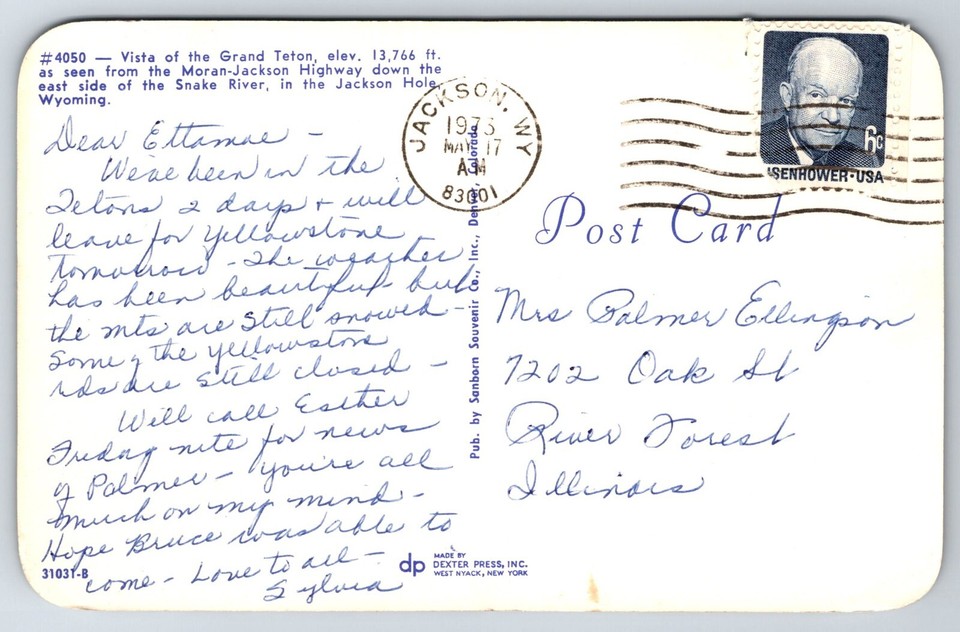 #4050 — Vista of the Grand Teton, elev. 13,766 ft.
as seen from the Moran-Jackson Highway down the
east side of the Snake River, in the Jackson Hole,
Wyoming.
Dear Ettamae –
We've been in the
Tetons 2 days + will
leave for Yellowstone
tomorrow – The weather
has been beautiful – but
the mts are still snowed –
Some of the Yellowstone
rds are still closed –
Will call Esther
Friday nite for news
of Palmer – You're all
much on my mind –
Hope Bruce was able to
come – Love to all –
Sylvia
31031-B
Pub. by Sanborn Souvenir Co., Inc., Denver, Colorado
dp MADE BY
DEXTER PRESS, INC.
WEST NYACK, NEW YORK
JACKSON, WY
1973
MAY 17
AM
83001
6c
EISENHOWER·USA
Post Card
Mrs Palmer Ellingson
7202 Oak St
River Forest
Illinois